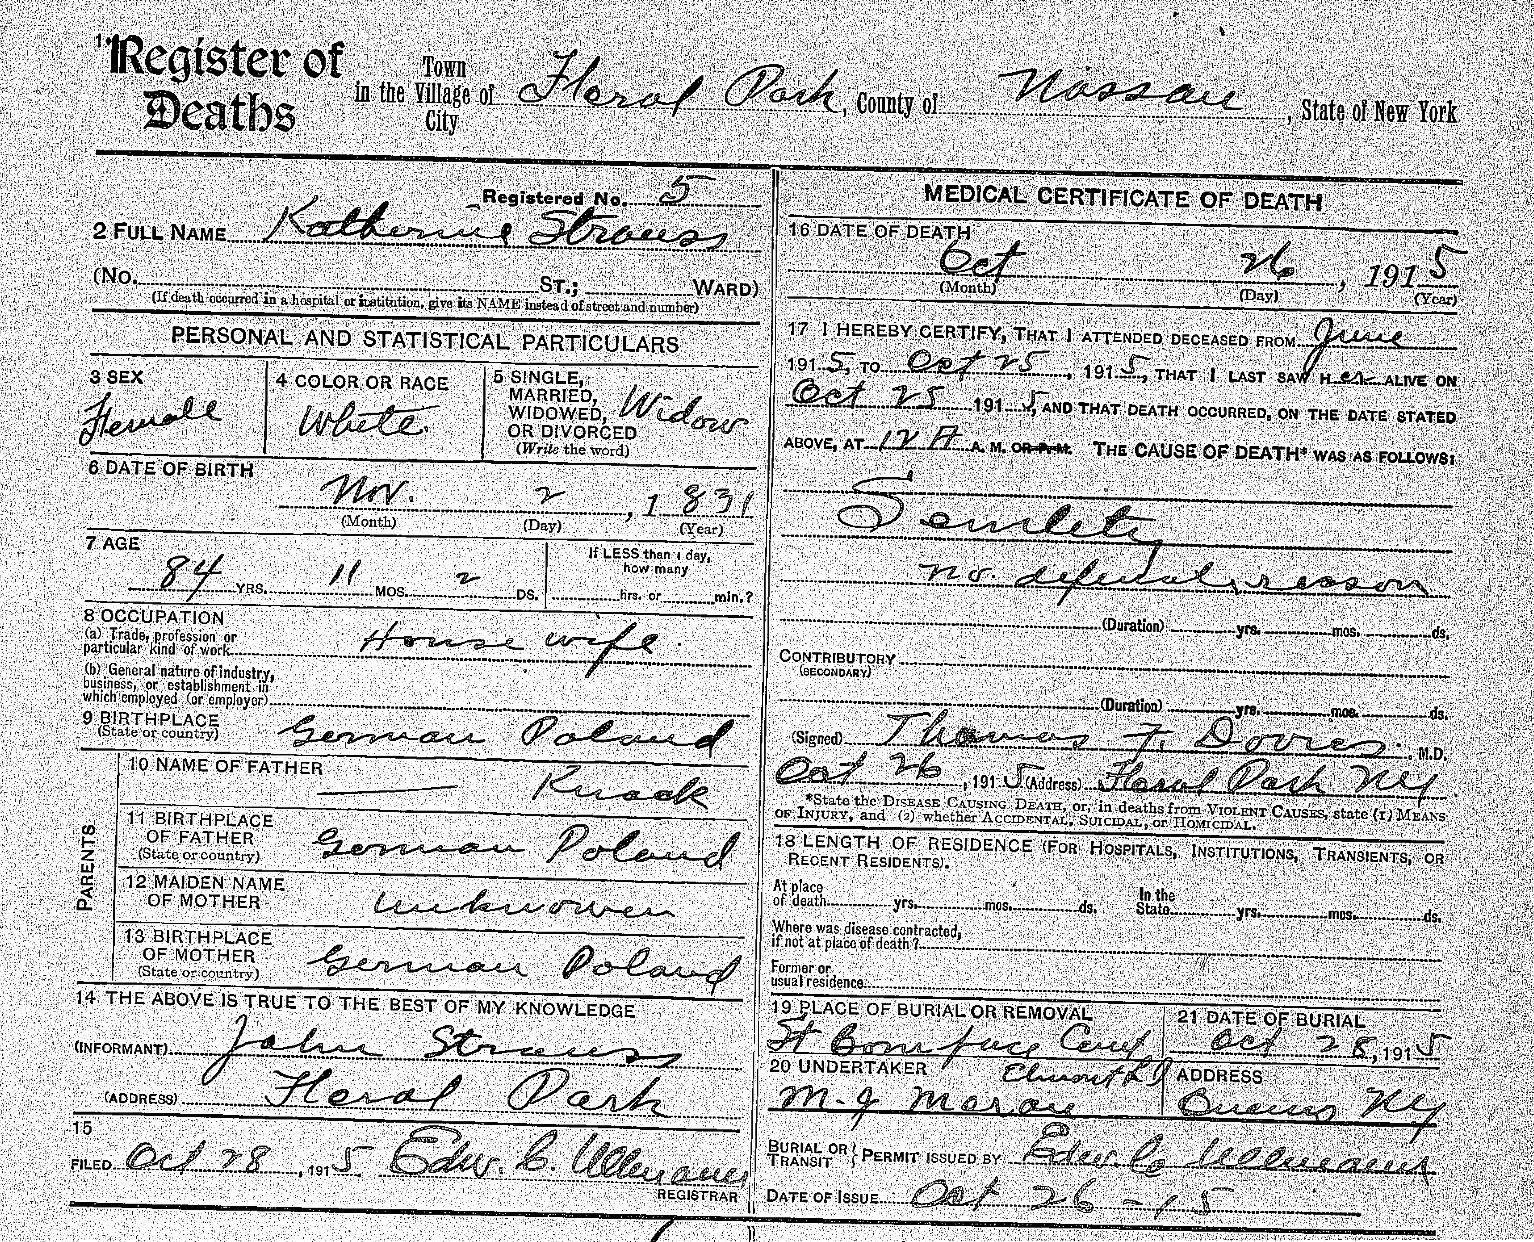 1 Register of Deaths
Town
in the Village of Floral Park, County of Nassau, State of New York
City
Registered No. 5
2 FULL NAME Katherine Strauss
(No. ST.; WARD)
(If death occurred in a hospital or institution, give its NAME instead of street and number)
PERSONAL AND STATISTICAL PARTICULARS
3 SEX
Female
4 COLOR OR RACE
White
5 SINGLE,
MARRIED,
WIDOWED,
OR DIVORCED
(Write the word)
Widow
6 DATE OF BIRTH
Nov. 2, 1831
(Month) (Day) (Year)
7 AGE
84 YRS. 11 MOS. 2 DS.
If LESS than 1 day,
how many
hrs. or min.?
8 OCCUPATION
(a) Trade, profession or
particular kind of work House wife
(b) General nature of industry,
business, or establishment in
which employed (or employer)
9 BIRTHPLACE
(State or country) German Poland
PARENTS
10 NAME OF FATHER
— Knack
11 BIRTHPLACE
OF FATHER
(State or country) German Poland
12 MAIDEN NAME
OF MOTHER unknowen
13 BIRTHPLACE
OF MOTHER
(State or country) German Poland
14 THE ABOVE IS TRUE TO THE BEST OF MY KNOWLEDGE
(INFORMANT) John Strauss
(ADDRESS) Floral Park
15
FILED Oct 28, 1915 Edw. C.
REGISTRAR
MEDICAL CERTIFICATE OF DEATH
16 DATE OF DEATH
Oct 26, 1915
(Month) (Day) (Year)
17 I HEREBY CERTIFY, THAT I ATTENDED DECEASED FROM June
1915, TO Oct 25, 1915, THAT I LAST SAW Her ALIVE ON
Oct 25 1915, AND THAT DEATH OCCURRED, ON THE DATE STATED
ABOVE, AT 12 A A. M. OR P. M. THE CAUSE OF DEATH* WAS AS FOLLOWS:
Senility
no. reason
(Duration) yrs. mos. ds.
CONTRIBUTORY
(SECONDARY)
(Duration) yrs. mos. ds.
(Signed) Thomas F. M.D.
Oct 26, 1915 (Address) Floral Park NY
*State the DISEASE CAUSING DEATH, or, in deaths from VIOLENT CAUSES, state (1) MEANS
OF INJURY, and (2) whether ACCIDENTAL, SUICIDAL, or HOMICIDAL.
18 LENGTH OF RESIDENCE (FOR HOSPITALS, INSTITUTIONS, TRANSIENTS, OR
RECENT RESIDENTS).
At place
of death yrs. mos. ds. In the
State yrs. mos. ds.
Where was disease contracted,
if not at place of death?
Former or
usual residence
19 PLACE OF BURIAL OR REMOVAL
St Boniface Cemt
Elmont L I
21 DATE OF BURIAL
Oct 28, 1915
20 UNDERTAKER
M. J Moran
ADDRESS
Queens NY
BURIAL OR
TRANSIT } PERMIT ISSUED BY Edw. C
DATE OF ISSUE Oct 26 - 15